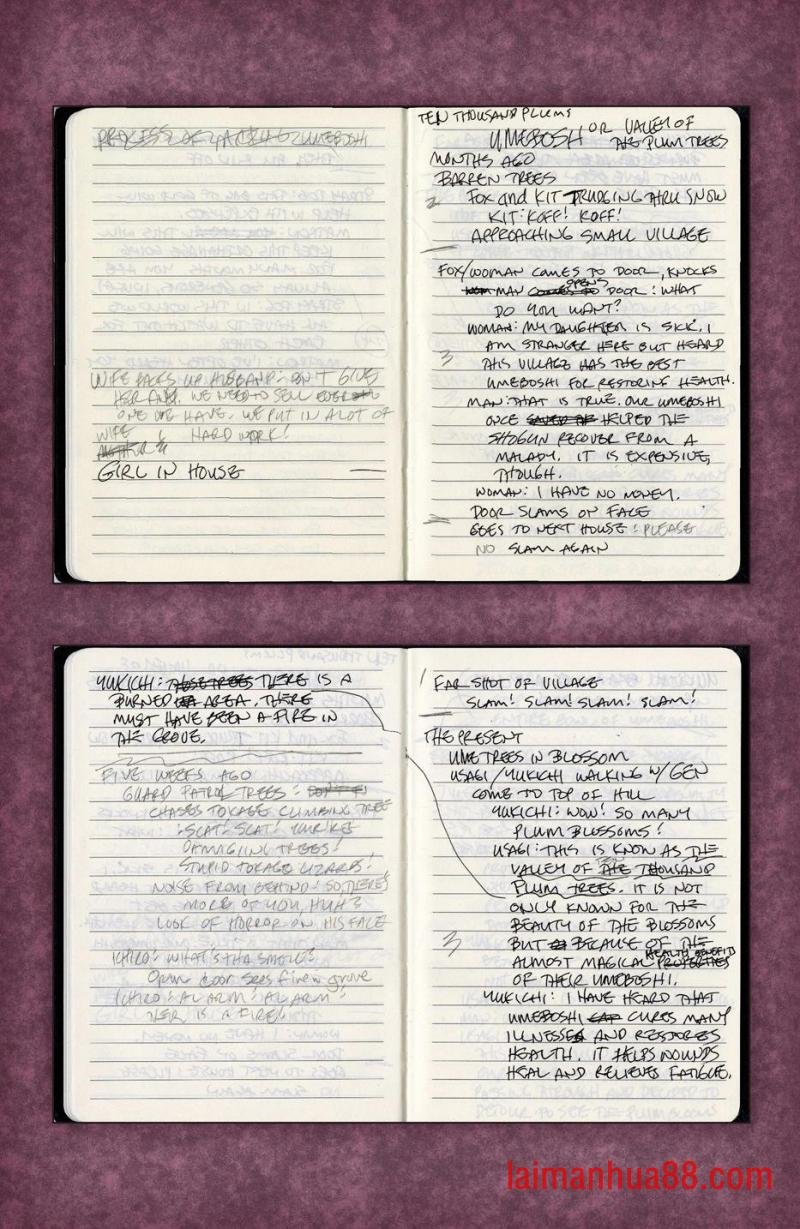 PROCESS OF MAKING UMEBOSHI
WIFE PACES UP HUSBAND: DON'T GIVE
HER ANY. WE NEED TO SELL
ONE WE HAVE. WE PUT IN A LOT OF
WIFE HARD WORK!
GIRL IN HOUSE
TEN THOUSAND PLUMS
UMEBOSHI OR VALLEY OF
THE PLUM TREES
MONTHS AGO
BARREN TREES
2 FOX and KIT TRUDGING THRU SNOW
KIT: KOFF! KOFF!
APPROACHING SMALL VILLAGE
FOX/WOMAN COMES TO DOOR, KNOCKS
MAN COMES TO OPENS DOOR: WHAT
DO YOU WANT?
WOMAN: MY DAUGHTER IS SICK. I
AM STRANGER HERE BUT HEARD
3 THIS VILLAGE HAS THE BEST
UMEBOSHI FOR RESTORING HEALTH.
MAN: THAT IS TRUE. OUR UMEBOSHI
ONCE HELPED THE
SHOGUN RECOVER FROM A
MALADY. IT IS EXPENSIVE,
THOUGH.
WOMAN: I HAVE NO MONEY.
DOOR SLAMS ON FACE
GOES TO NEXT HOUSE: PLEASE
NO SLAM AGAIN
YUKICHI: THOSE TREES THERE IS A
BURNED AREA. THERE
MUST HAVE BEEN A FIRE IN
THE GROVE.
FIVE WEEKS AGO
GUARD PATROL TREES: DON'T
CHASES TOKAGE CLIMBING TREE
: SCAT! SCAT! YOU'RE
DAMAGING TREES!
STUPID TOKAGE LIZARDS!
NOISE FROM BEHIND: SO, THERE'S
MORE OF YOU, HUH?
LOOK OF HORROR ON HIS FACE
ICHIRO: WHAT'S THA SMOKE?
Open door sees fire in grove
ICHIRO: ALARM! ALARM!
THER IS A FIRE!!
1 FAR SHOT OF VILLAGE
SLAM! SLAM! SLAM! SLAM!
THE PRESENT
UME TREES IN BLOSSOM
USAGI/YUKICHI WALKING W/GEN
COME TO TOP OF HILL
YUKICHI: WOW! SO MANY
PLUM BLOSSOMS!
USAGI: THIS IS KNOW AS THE
VALLEY OF THE TEN THOUSAND
PLUM TREES. IT IS NOT
ONLY KNOWN FOR THE
BEAUTY OF THE BLOSSOMS
3 BUT BECAUSE OF THE
ALMOST MAGICAL PROPERTIES HEALTH BENEFITS
OF THEIR UMEBOSHI.
YUKICHI: I HAVE HEARD THAT
UMEBOSHI CURES MANY
ILLNESS AND RESTORES
HEALTH. IT HELPS WOUNDS
HEAL AND RELIEVES FATIGUE.
laimanhua88.com